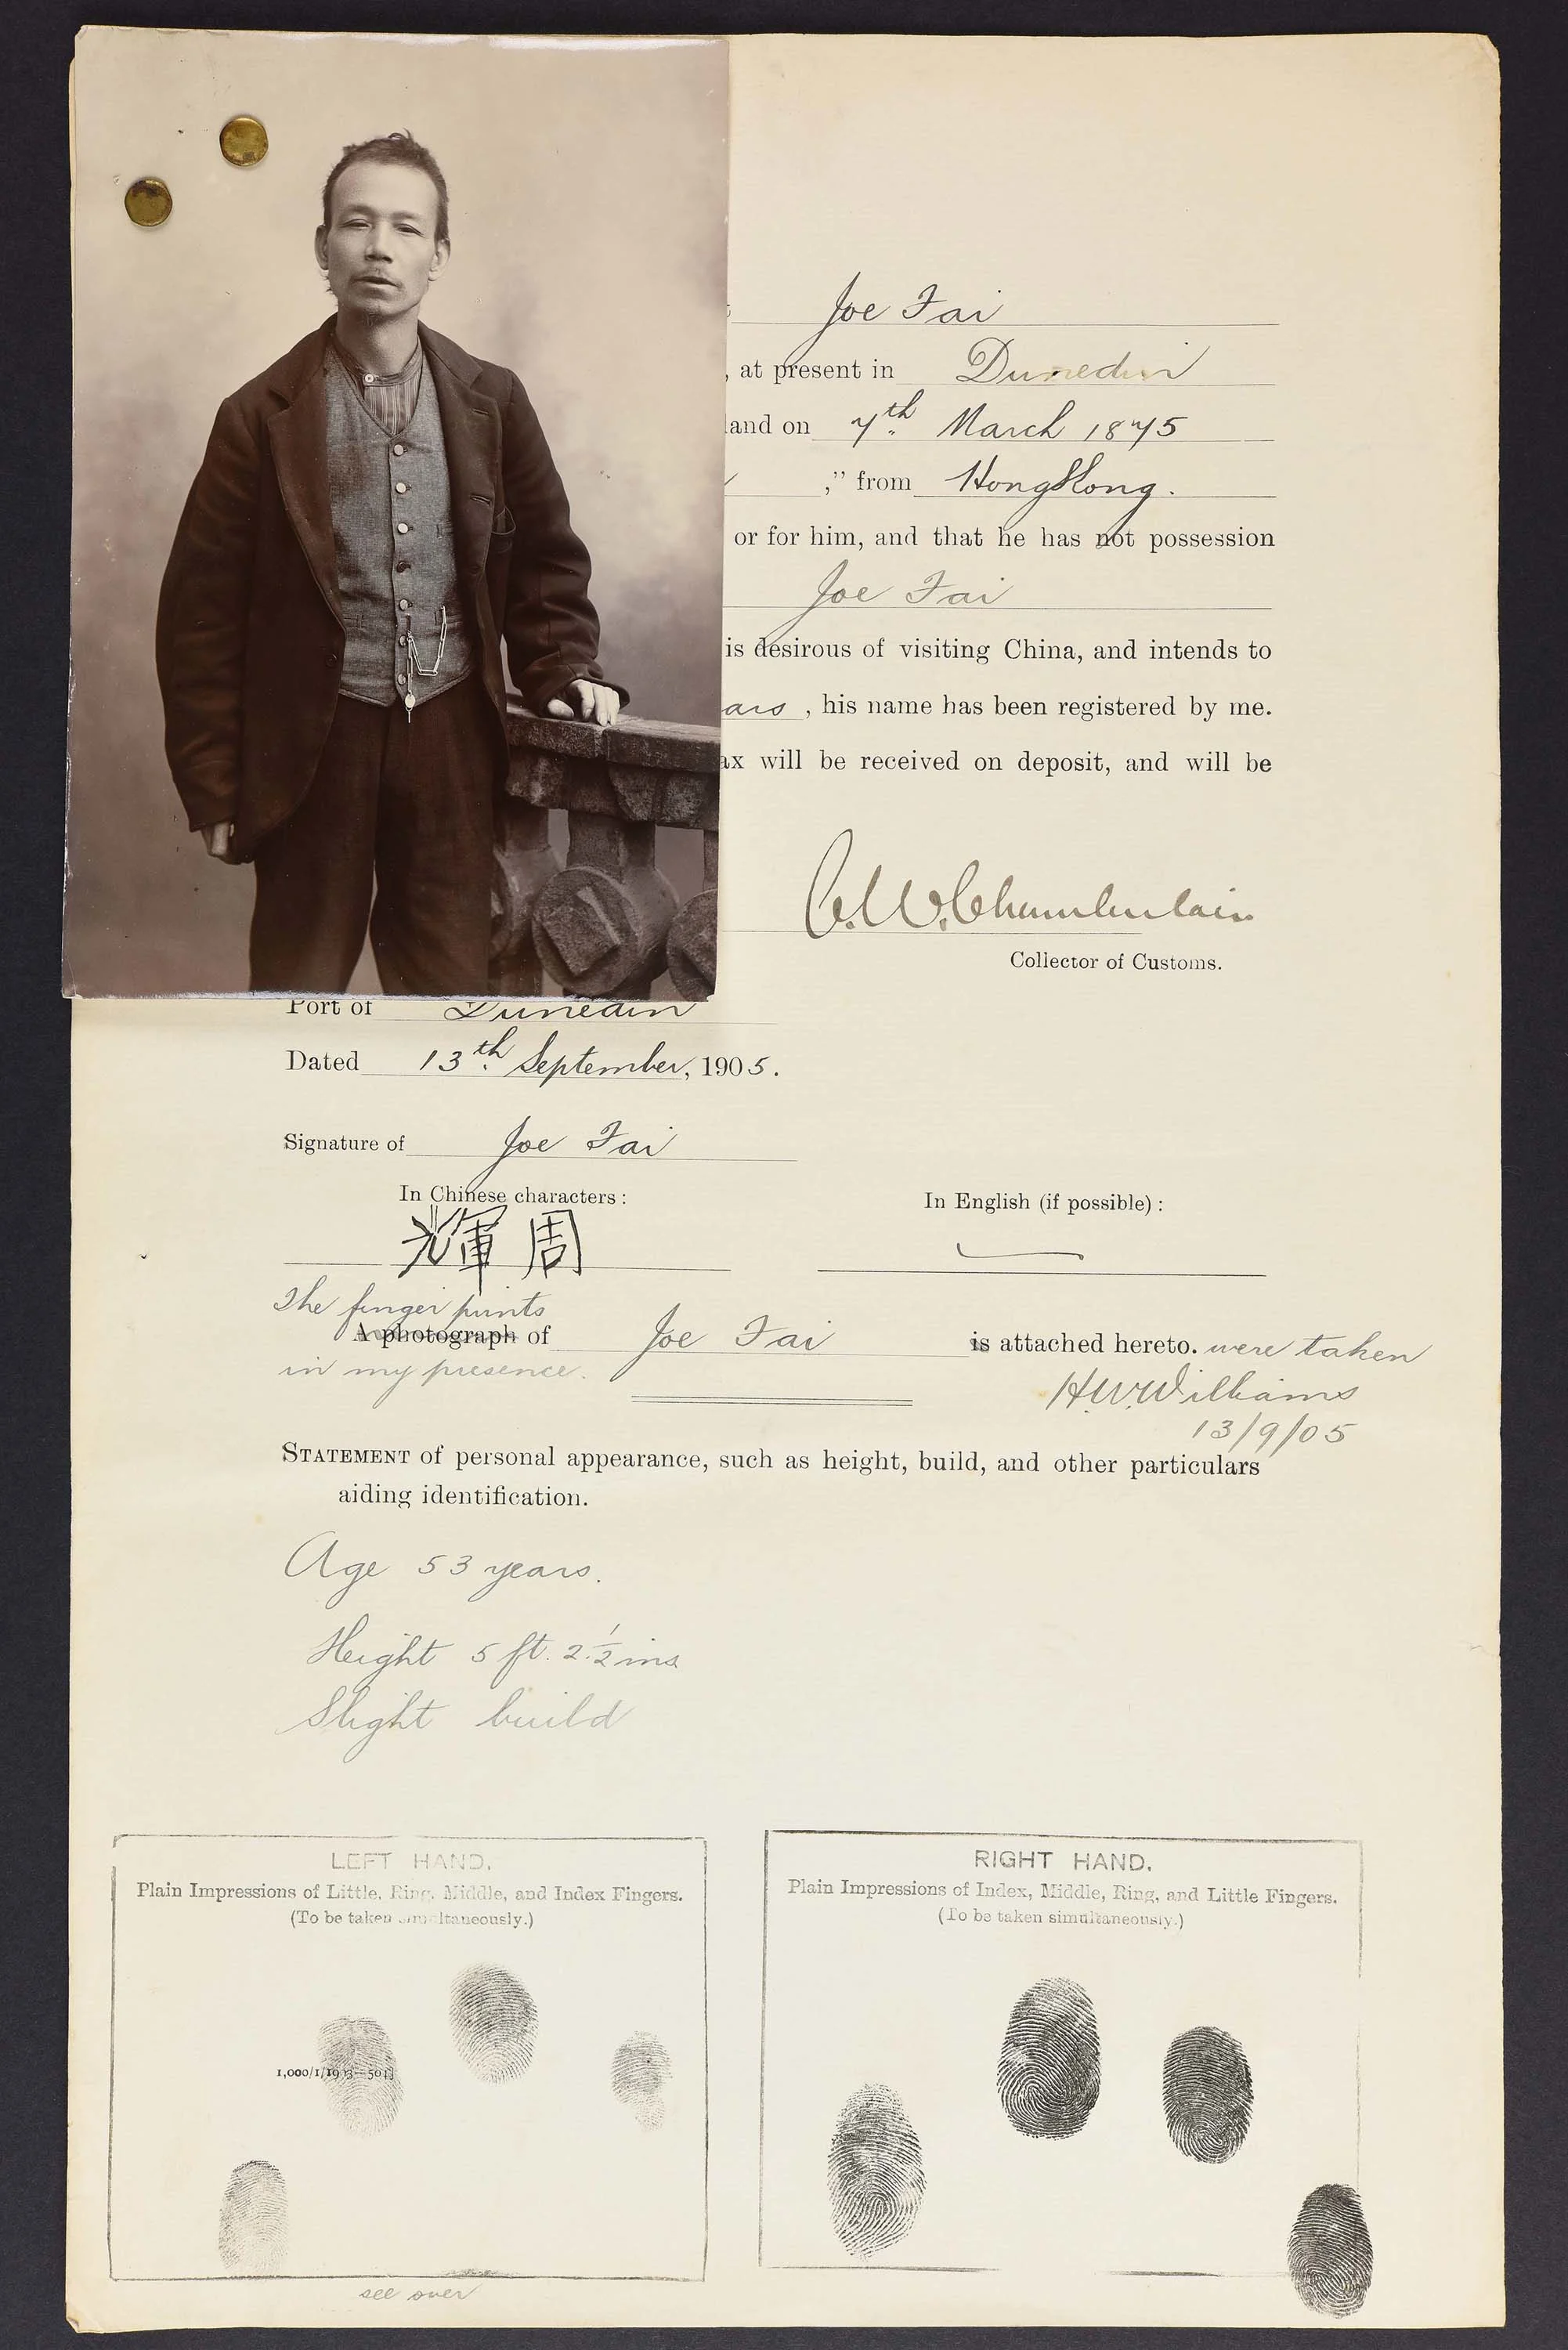 Joe Fai
, at present in Dunedin
land on 7th. March 1875
," from HongKong.
or for him, and that he has not possession
Joe Fai
is desirous of visiting China, and intends to
ars, his name has been registered by me.
ax will be received on deposit, and will be
C. W. Chamberlain
Collector of Customs.
Port of Dunedin
Dated 13th. September, 1905.
Signature of Joe Fai
In Chinese characters:
In English (if possible):
輝周
The finger prints
A photograph of Joe Fai is attached hereto. were taken
in my presence.
H.W. Williams
13/9/05
STATEMENT of personal appearance, such as height, build, and other particulars
aiding identification.
Age 53 years.
Height 5 ft. 2 1/2 ins
Slight build
LEFT HAND.
Plain Impressions of Little, Ring, Middle, and Index Fingers.
(To be taken simultaneously.)
1,000/1/1903—501]
see over
RIGHT HAND.
Plain Impressions of Index, Middle, Ring, and Little Fingers.
(To be taken simultaneously.)